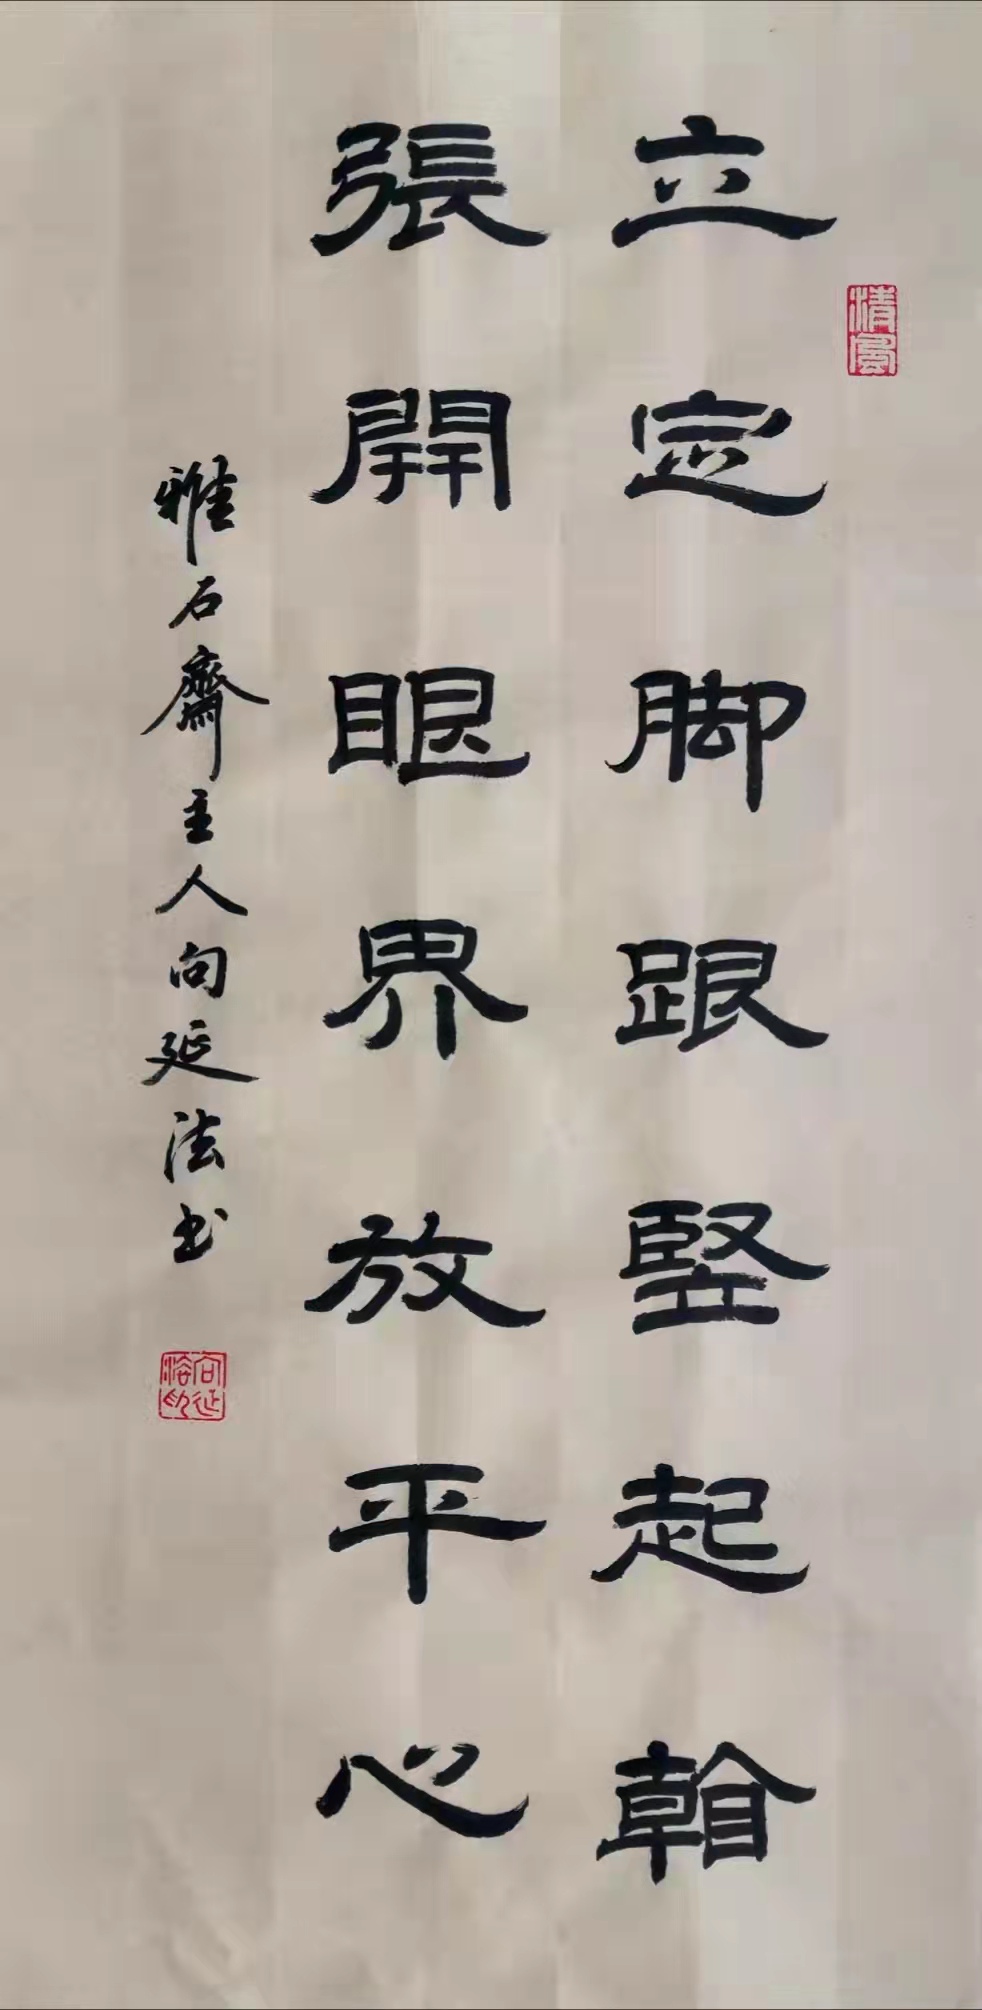 立定脚跟竪起
張開眼界放平心
雅石齋主人向延法书
向延法印